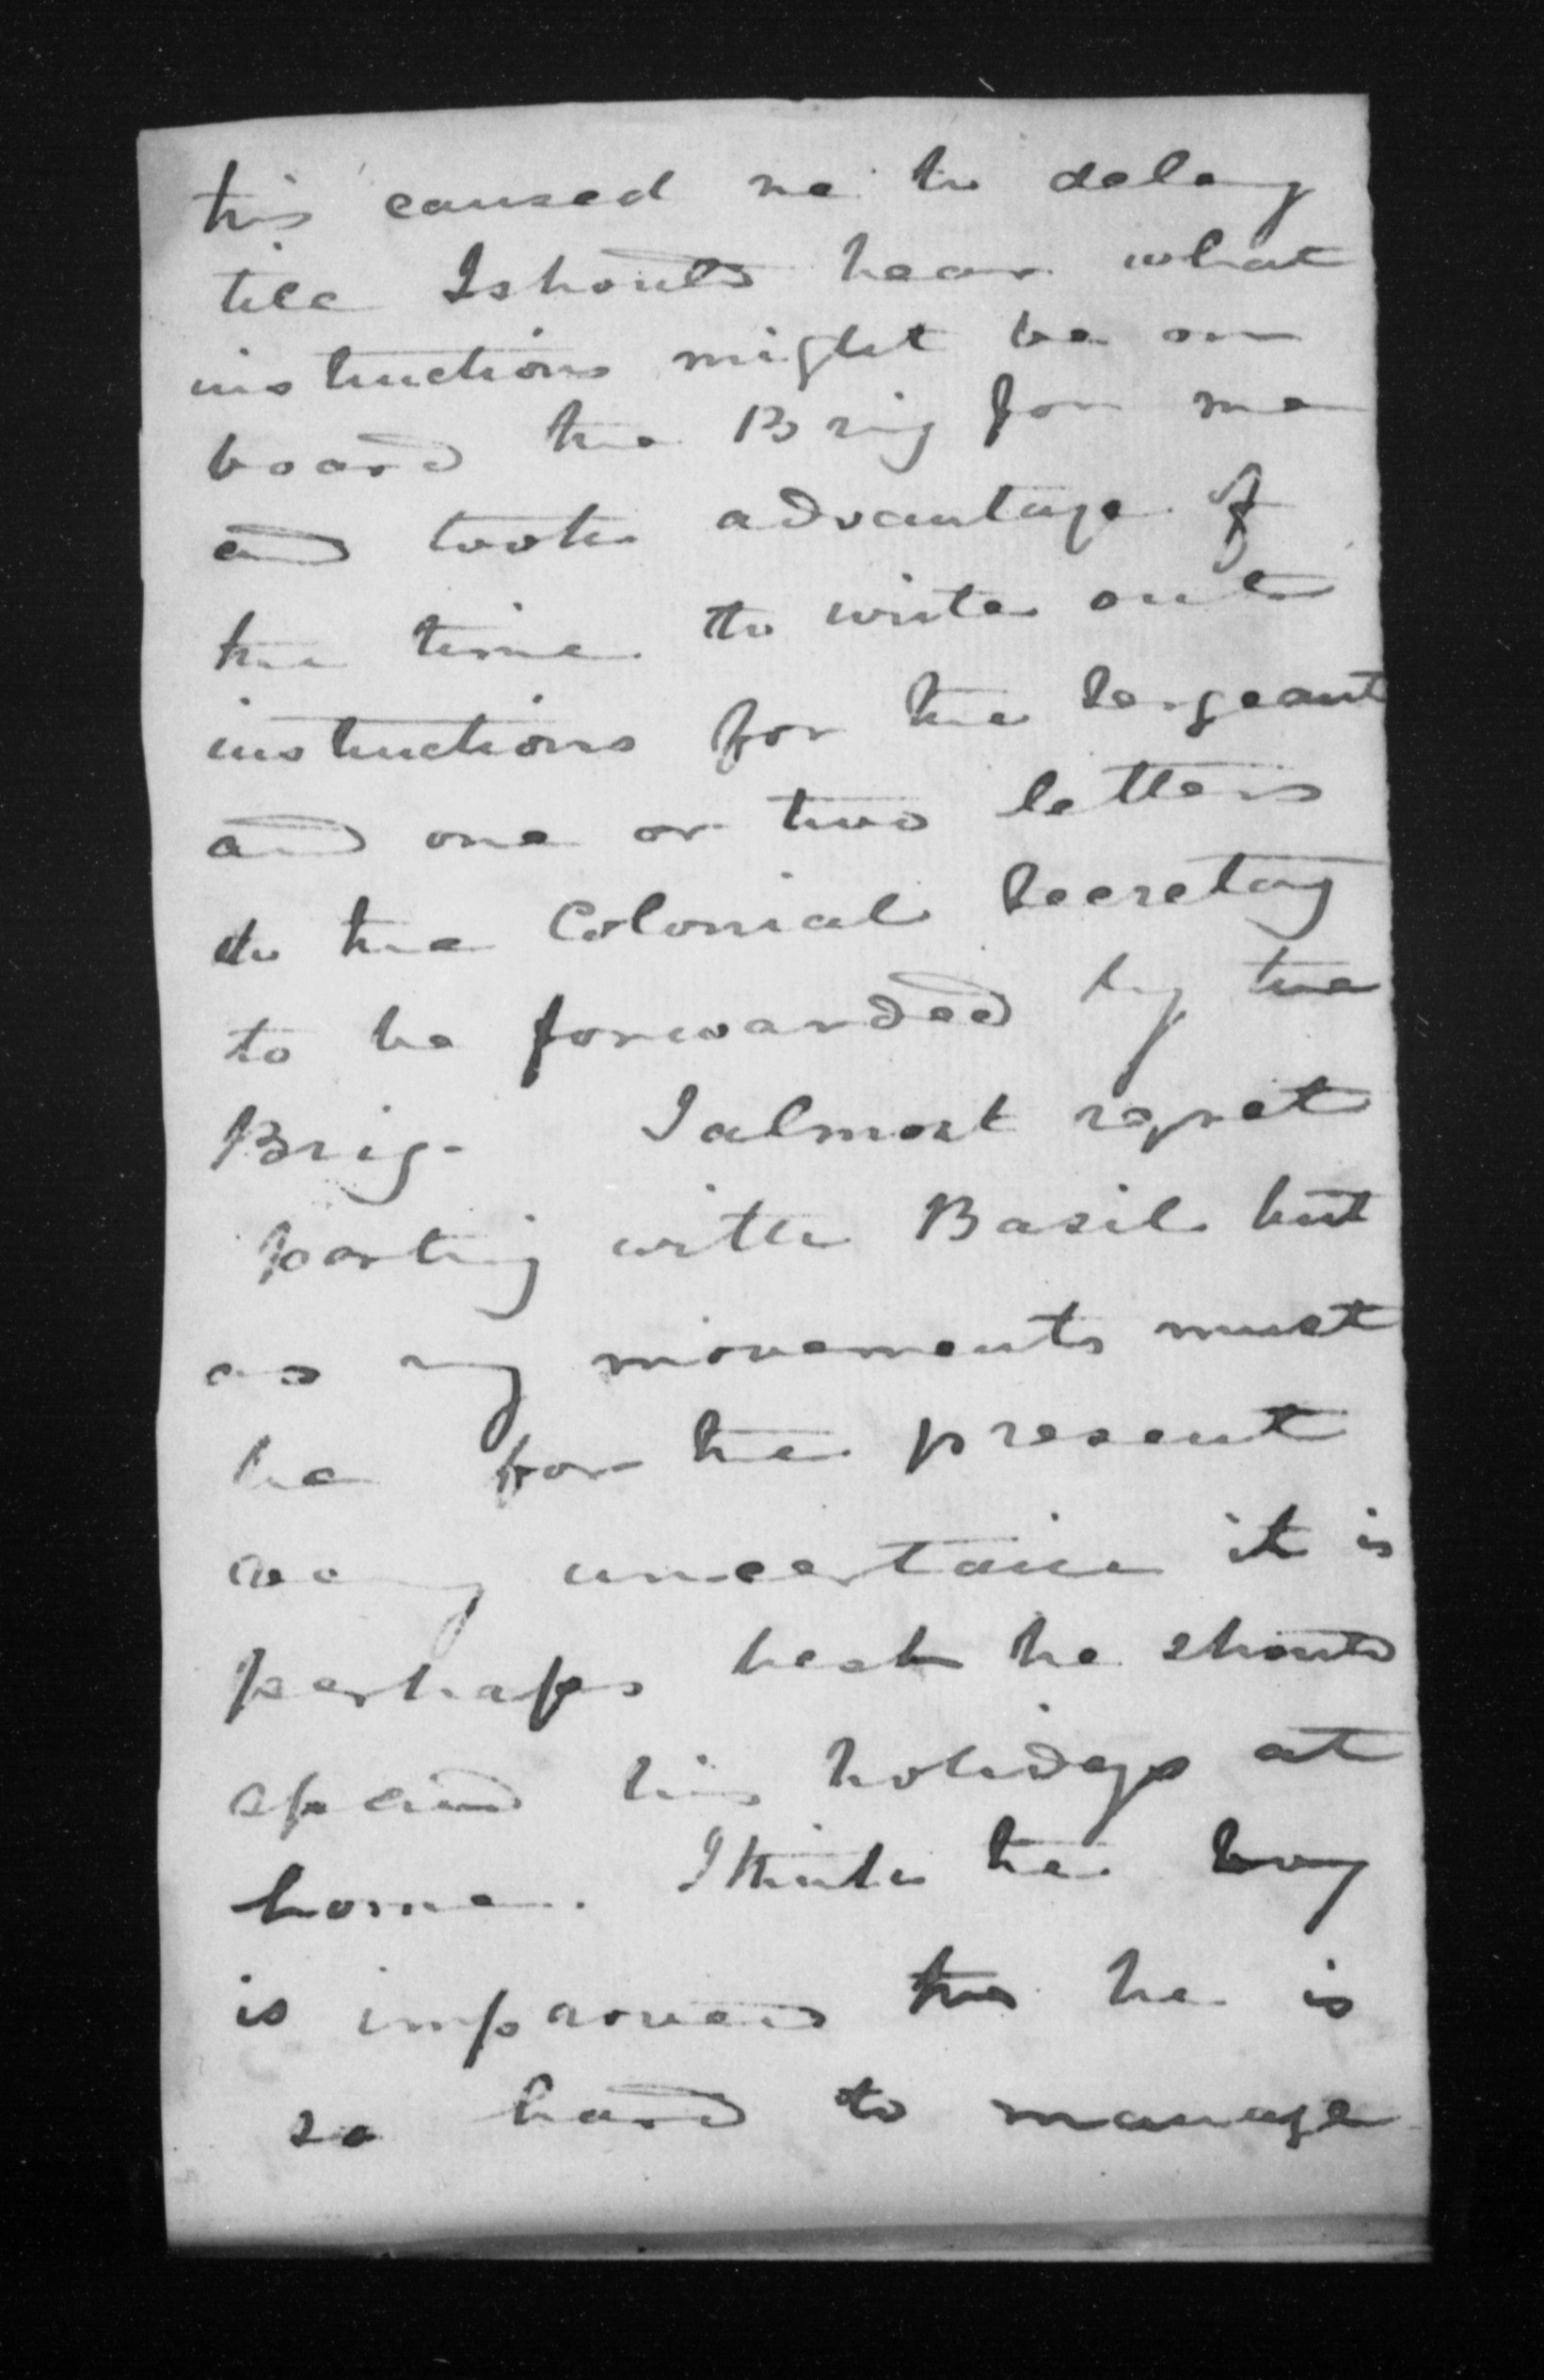 this caused me to delay
till I should hear what
instructions might be on
board the Brig for me
and took advantage of
the time to write out
instructions for the Sergeant
and one or two letters
to the Colonial Secretary
to be forwarded by the
Brig - I almost regret
parting with Basil but
as my movements must
be for the present
very uncertain it is
perhaps best he should
spend his holidays at
home. I think the boy
is improved tho he is
so hard to manage